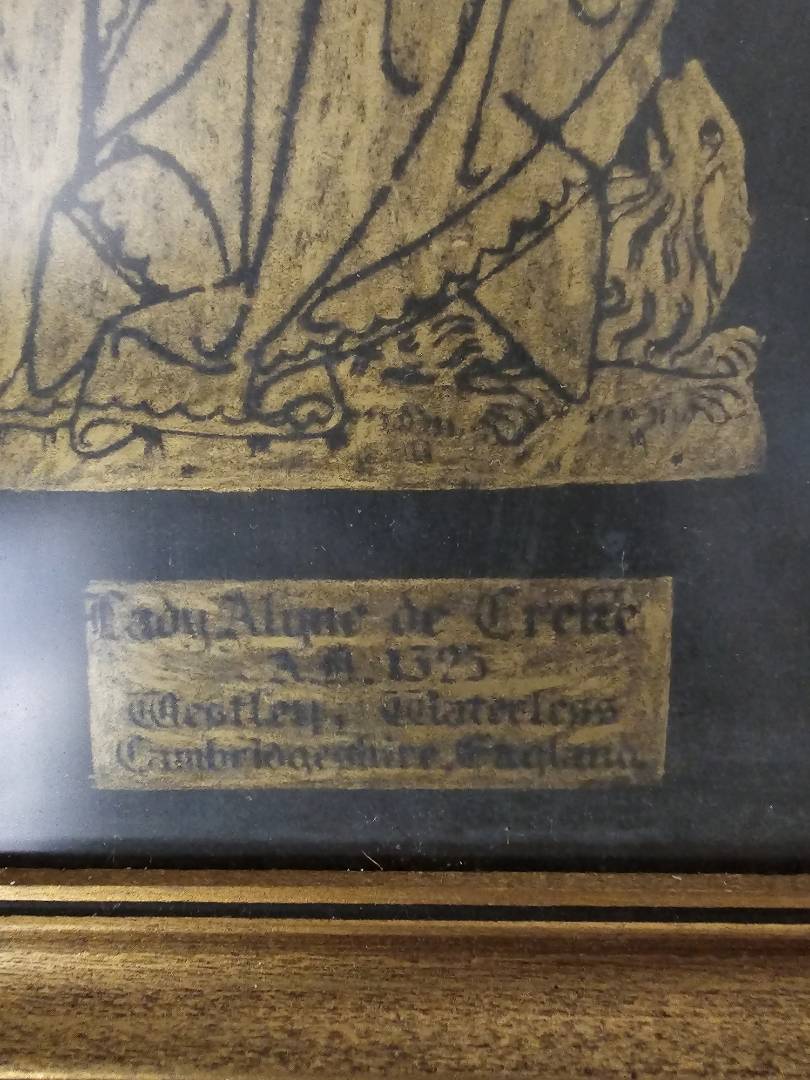 Lady Alyne de Creke
A.D. 1325
Westley, Waterless
Cambridgeshire, England.